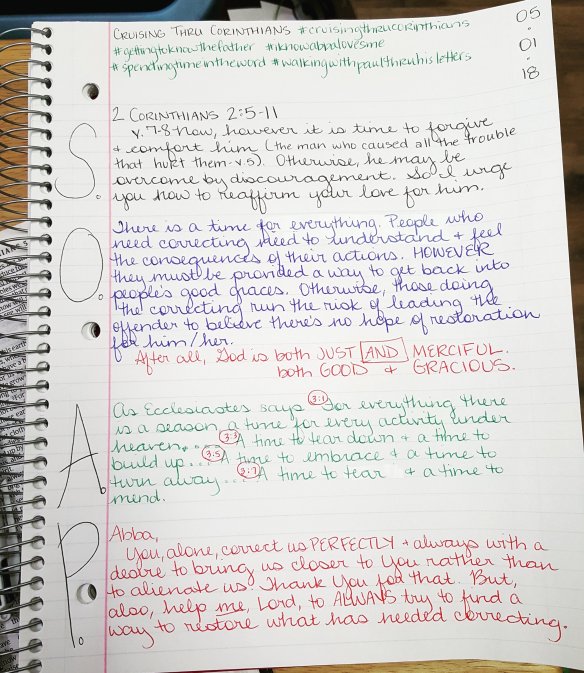 CRUISING THRU CORINTHIANS #cruisingthrucorinthians
#gettingtoknowthefather #iknowabbalovesme
#spendingtimeintheword #walkingwithpaulthruhisletters
05
.
01
.
18
S.
2 CORINTHIANS 2:5-11
v.7-8 Now, however it is time to forgive
+ comfort him (the man who caused all the trouble
that hurt them-v.5). Otherwise, he may be
overcome by discouragement. So I urge
you now to reaffirm your love for him.
O.
There is a time for everything. People who
need correcting need to understand + feel
the consequences of their actions. HOWEVER
they must be provided a way to get back into
people's good graces. Otherwise, those doing
the correcting run the risk of leading the
offender to believe there's no hope of restoration
for him/her.
After all, God is both JUST AND MERCIFUL.
both GOOD + GRACIOUS.
A.
As Ecclesiastes says 3:1 For everything there
is a season, a time for every activity under
heaven.... 3:3 A time to tear down + a time to
build up... 3:5 A time to embrace + a time to
turn away... 3:7 A time to tear + a time to
mend.
P.
Abba,
You, alone, correct us PERFECTLY + always with a
desire to bring us closer to You rather than
to alienate us. Thank You for that. But,
also, help me, Lord, to ALWAYS try to find a
way to restore what has needed correcting.